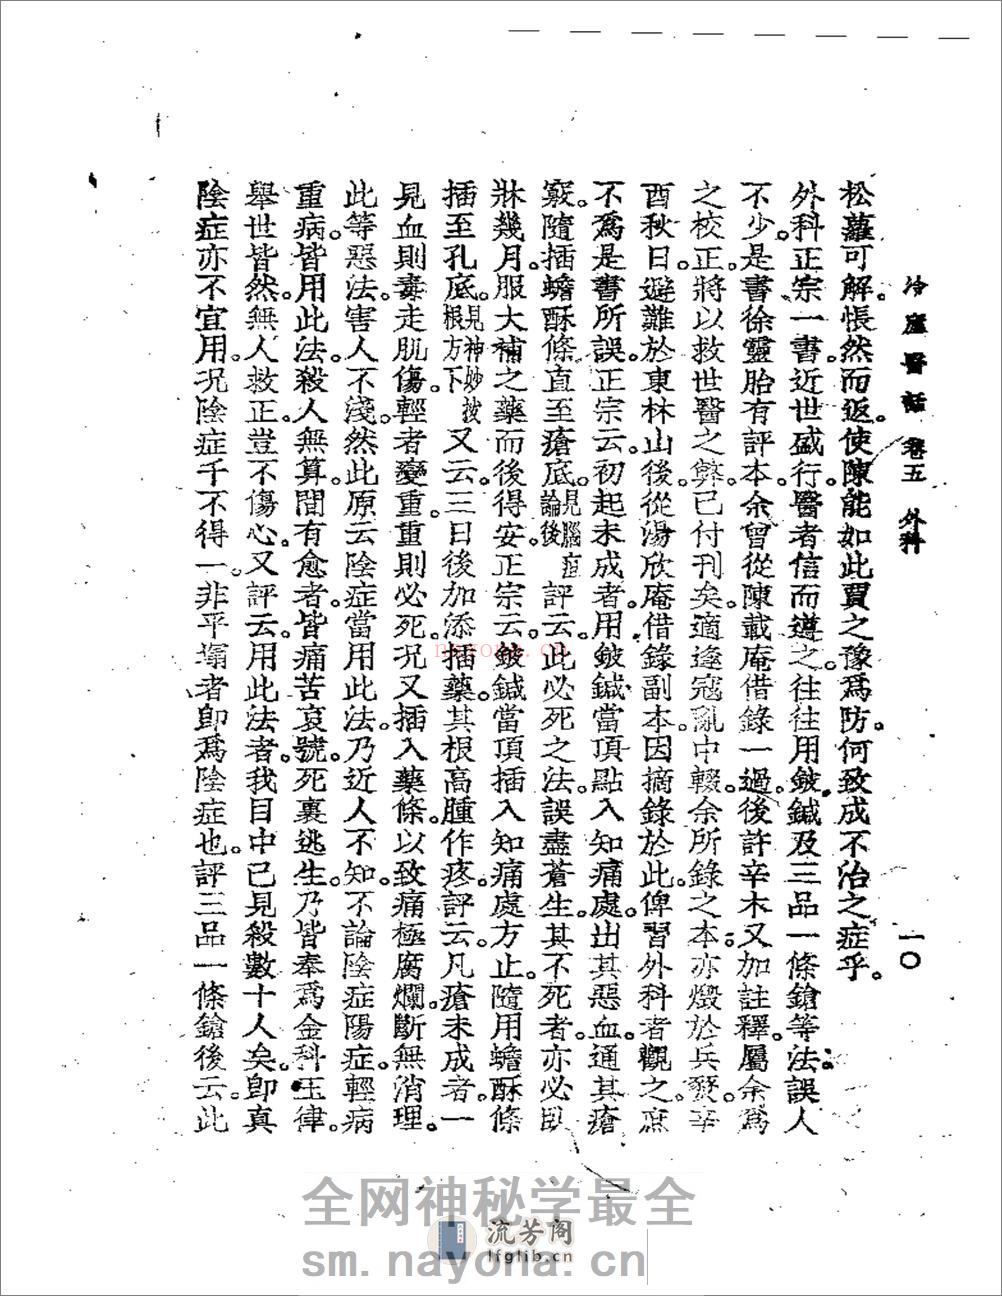 冷廬醫話 卷五 外科 一〇
松蘿可解。悵然而返。使陳能如此賈之豫爲防。何致成不治之症乎。
外科正宗一書。近世盛行。醫者信而遵之。往往用鈹鍼及三品一條鎗等法。誤人
不少。是書徐靈胎有評本。余曾從陳載庵借錄一過。後許辛木又加註釋。屬余爲
之校正。將以救世醫之弊。已付刊矣。適逢寇亂中輟。余所錄之本。亦燬於兵燹。辛
酉秋日。避難於東林山。後從湯欣庵借錄副本。因摘錄於此。俾習外科者觀之。庶
不爲是書所誤。正宗云。初起未成者。用鈹鍼當頂點入知痛處。出其惡血。通其瘡
竅。隨插蟾酥條直至瘡底。見腦疽論後 評云。此必死之法。誤盡蒼生。其不死者。亦必臥
牀幾月。服大補之藥而後得安。正宗云。鈹鍼當頂插入知痛處方止。隨用蟾酥條
插至孔底。見神妙拔根方下 又云。三日後加添插藥。其根高腫作疼。評云。凡瘡未成者。一
見血則毒走肌傷。輕者變重。重則必死。況又插入藥條。以致痛極腐爛。斷無消理。
此等惡法。害人不淺。然此原云陰症當用此法。乃近人不知。不論陰症陽症。輕病
重病。皆用此法。殺人無算。間有愈者。皆痛苦哀號。死裏逃生。乃皆奉爲金科玉律。
舉世皆然。無人救正。豈不傷心。又評云。用此法者。我目中已見殺數十人矣。卽真
陰症亦不宜用。況陰症千不得一。非平塌者卽爲陰症也。評三品一條鎗後云。此
全网神秘学最全
流芳阁
lfglib.cn
sm.nayona.cn
nayona.cn